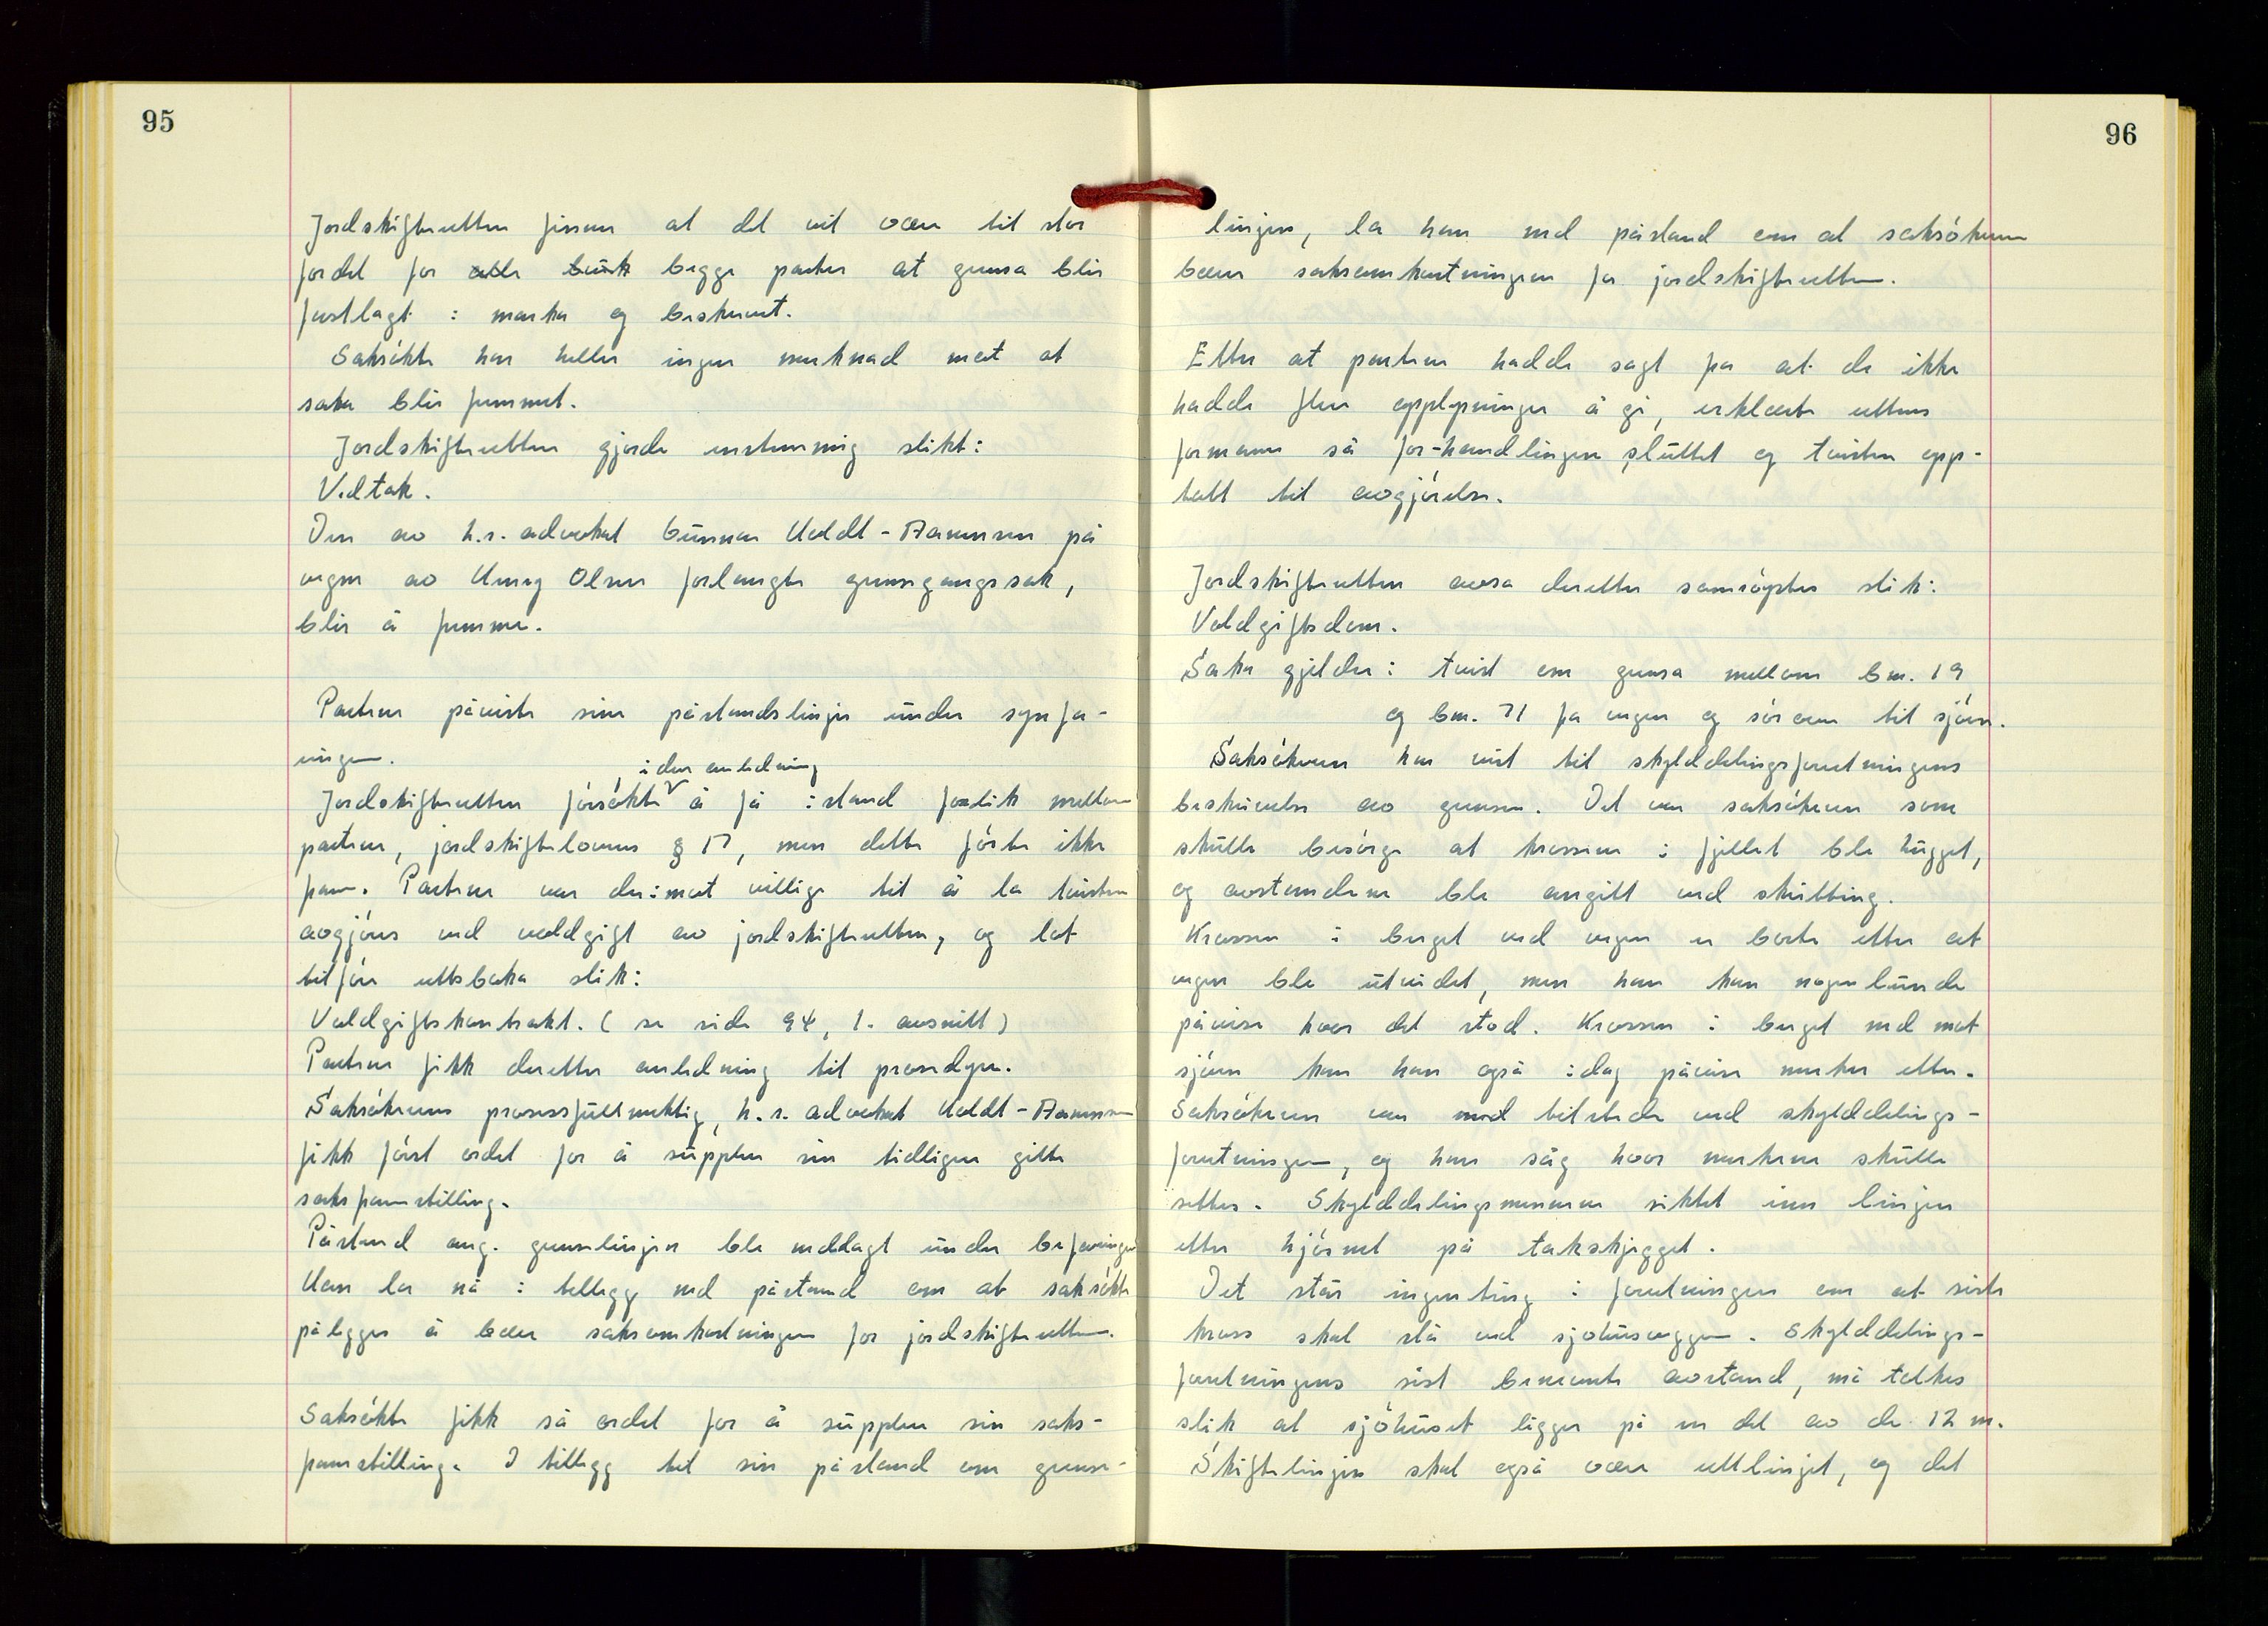 95
Jordskifteretten finner at det vil være til stor
fordel for alle bruk begge parter at grensa blir
fastlagt i marka og beskrevet.
Saksøkte har heller ingen merknad mot at
saka blir fremmet.
Jordskifteretten gjorde enstemmig slikt:
Vedtak.
Den av h.r. advokat Gunnar Heldt - Hansen på
vegne av Henry Olsen forlangte grensegangssak,
blir å fremme.
Partene påviste sine påstandslinjer under synfa-
ringen.
i den anledning
Jordskifteretten forsøkte å få istand forlik mellom
partene, jordskiftelovens § 17, men dette førte ikke
fram. Partene var derimot villige til å la tvisten
avgjøres ved voldgift av jordskifteretten, og lot
tilføre rettsboka slik:
Voldgiftskontrakt. ( se side 94, 1. avsnitt )
Partene fikk deretter anledning til prosedyre.
Saksøkerens prosessfullmektig, h.r. advokat Heldt - Hansen
fikk først ordet for å supplere sin tidligere gitte
saksframstilling.
Påstand ang. grenselinjen ble nedlagt under befaringen
Han la nå i tillegg ned påstand om at saksøkte
pålegges å bære saksomkostningene for jordskifteretten.
Saksøkte fikk så ordet for å supplere sin saks-
framstilling. I tillegg til sin påstand om grense-
96
linjen, la han ned påstand om at saksøkeren
bærer saksomkostningene for jordskifteretten.
Etter at partene hadde sagt fra at de ikke
hadde flere opplysninger å gi, erklærte rettens
formann så for-handlingene sluttet og tvisten opp-
tatt til avgjørelse.
Jordskifteretten avsa deretter samrøystes slik:
Voldgiftsdom.
Saka gjelder: tvist om grensa mellom bnr. 19
og bnr. 71 fra vegen og sørover til sjøen.
Saksøkeren har vist til skylddelingsforretningens
beskrivelse av grensen. Det var saksøkeren som
skulle besørge at krossene i fjellet ble hugget,
og avstandene ble angitt ved skritting.
Krossen i berget ved vegen er borte etter at
vegen ble utvidet, men han kan nogenlunde
påvise hvor det stod. Krossen i berget ned mot
sjøen kan han også idag påvise merker etter.
Saksøkeren var med tilstede ved skylddelings-
forretningen, og han såg hvor merkene skulle
settes. Skylddelingsmennene siktet inn linjen
etter hjørnet på takskjegget.
Det står ingenting i forretningen om at siste
kross skal stå ved sjøhusveggen. Skylddelings-
forretningens sist benevnte avstand, må tolkes
slik at sjøhuset ligger på en del av de 12 m.
Skiftelinjen skal også være rettlinjet, og det